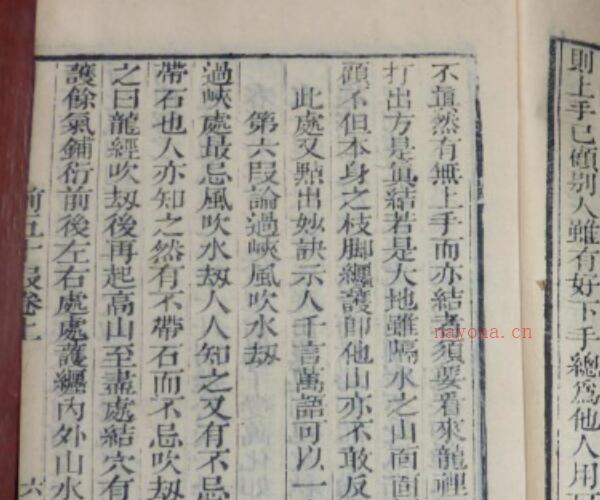 則上手已傾别人雖有好下手總爲他人用
不眞然有無上手而亦結者須要看來龍裡
打出方是眞結若是大地雖隔水之山面面
顧不但本身之枝脚纏護即他山亦不敢反
此處又點出妙訣示人千言萬語可以一
第六段論過峽風吹水刼
過峽處最忌風吹水刼人人知之又有不忌
帶石也人亦知之然有不帶石而不忌吹刼
之曰龍經吹刼後再起高山至盡處結穴有
護餘氣鋪衍前後左右處處護纏內外山水
前五十段卷上
六
nayona.cn